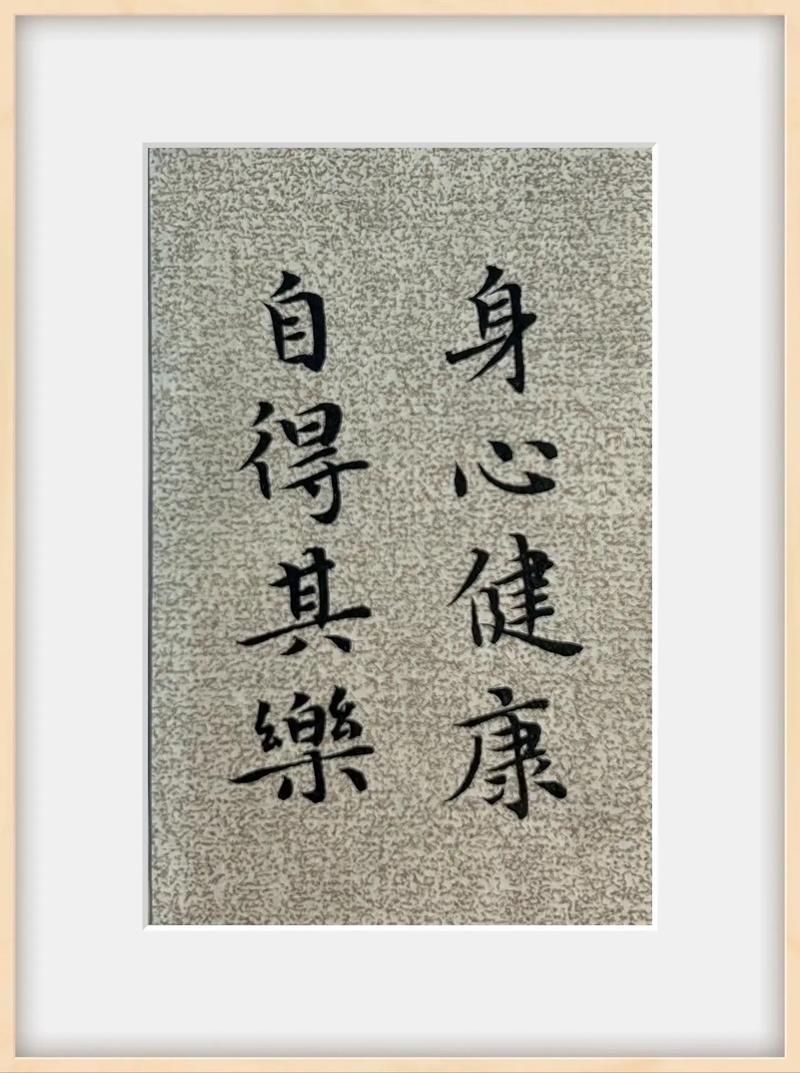 身心健康
自得其樂